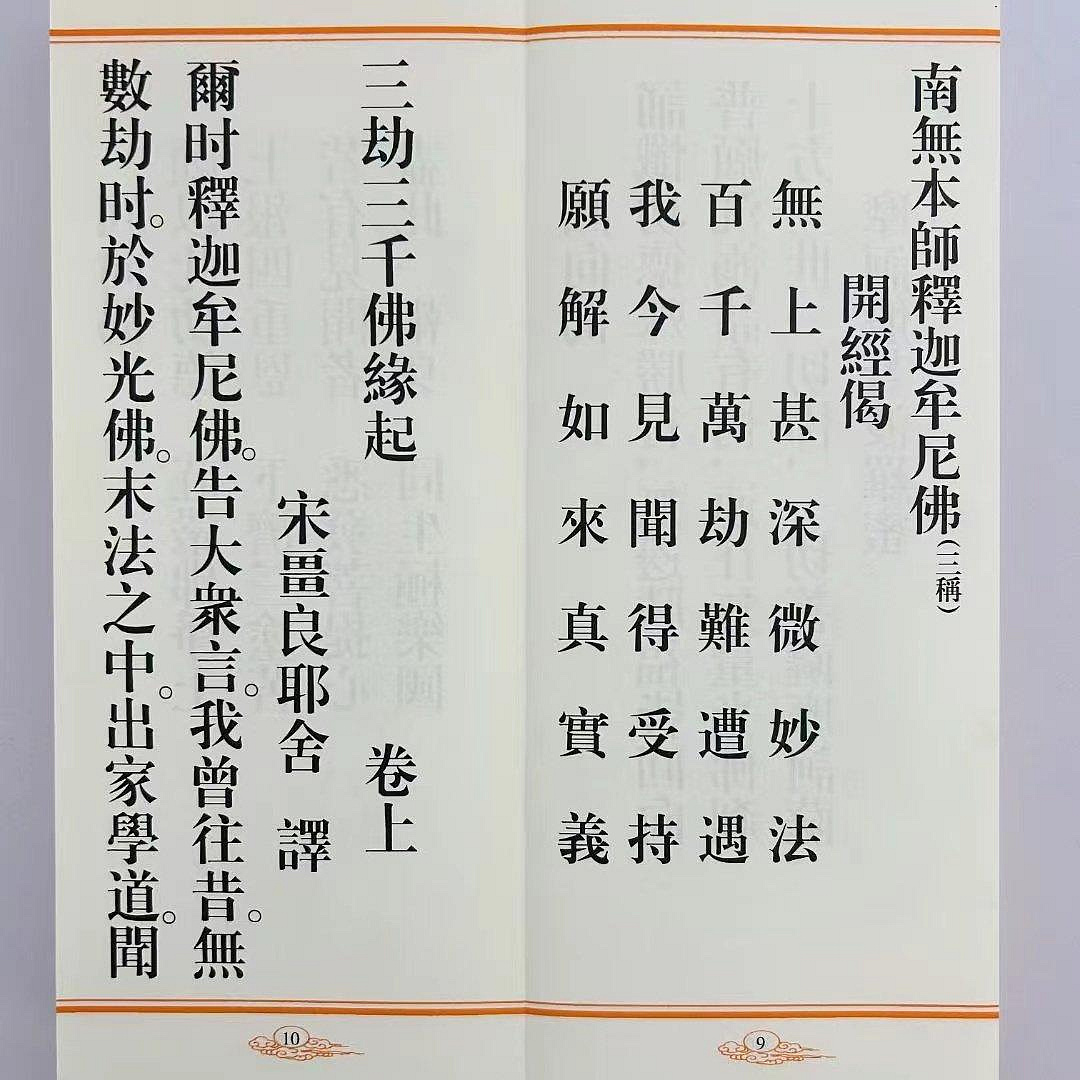 南無本師釋迦牟尼佛(三稱)
開經偈
無上甚深微妙法
百千萬劫難遭遇
我今見聞得受持
願解如來真實義
9
三劫三千佛緣起 卷上
宋畺良耶舍 譯
爾时釋迦牟尼佛。告大衆言。我曾往昔。無
數劫时。於妙光佛。末法之中。出家學道。聞
10